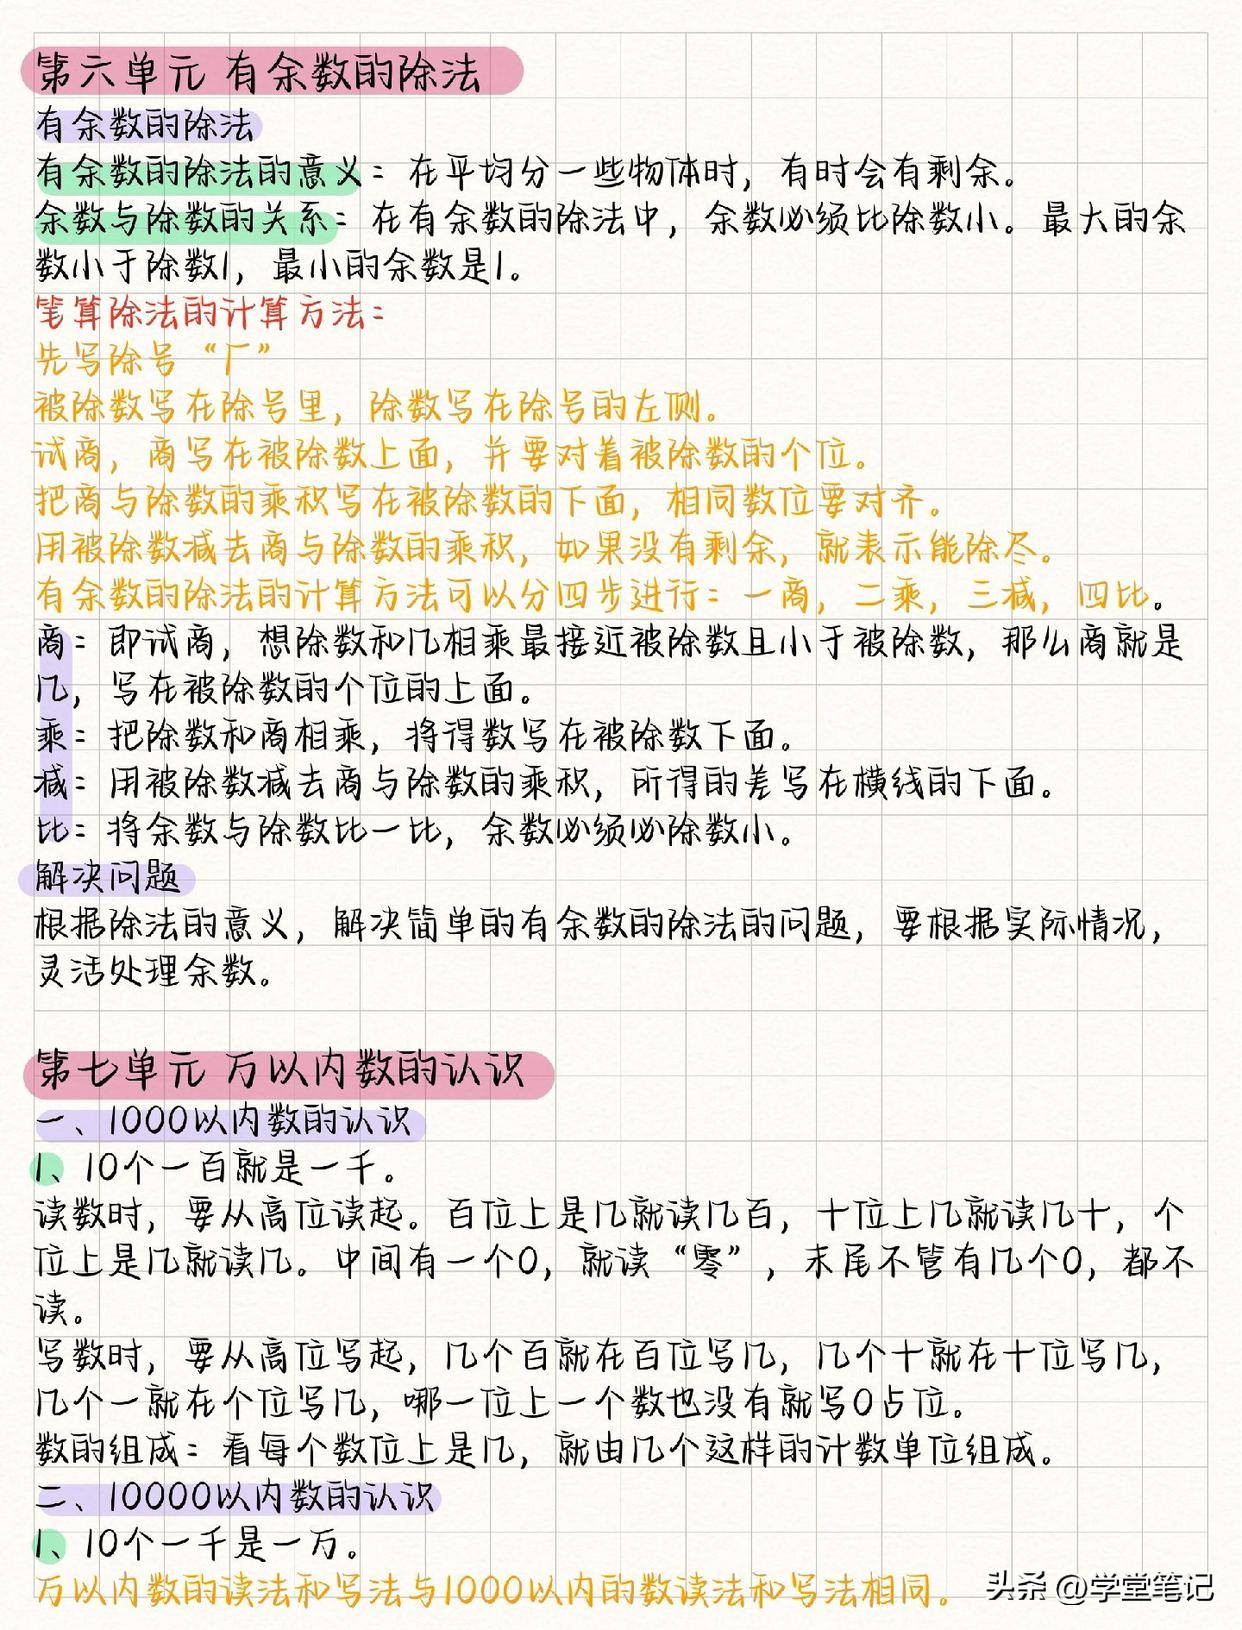 第六单元 有余数的除法
有余数的除法
有余数的除法的意义：在平均分一些物体时，有时会有剩余。
余数与除数的关系：在有余数的除法中，余数必须比除数小。最大的余
数小于除数1，最小的余数是1。
笔算除法的计算方法：
先写除号“厂”
被除数写在除号里，除数写在除号的左侧。
试商，商写在被除数上面，并要对着被除数的个位。
把商与除数的乘积写在被除数的下面，相同数位要对齐。
用被除数减去商与除数的乘积，如果没有剩余，就表示能除尽。
有余数的除法的计算方法可以分四步进行：一商，二乘，三减，四比。
商：即试商，想除数和几相乘最接近被除数且小于被除数，那么商就是
几，写在被除数的个位的上面。
乘：把除数和商相乘，将得数写在被除数下面。
减：用被除数减去商与除数的乘积，所得的差写在横线的下面。
比：将余数与除数比一比，余数必须必除数小。
解决问题
根据除法的意义，解决简单的有余数的除法的问题，要根据实际情况，
灵活处理余数。
第七单元 万以内数的认识
一、1000以内数的认识
1、10个一百就是一千。
读数时，要从高位读起。百位上是几就读几百，十位上几就读几十，个
位上是几就读几。中间有一个0，就读“零”，末尾不管有几个0，都不
读。
写数时，要从高位写起，几个百就在百位写几，几个十就在十位写几，
几个一就在个位写几，哪一位上一个数也没有就写0占位。
数的组成：看每个数位上是几，就由几个这样的计数单位组成。
二、10000以内数的认识
1、10个一千是一万。
万以内数的读法和写法与1000以内的数读法和写法相同。
头条 @学堂笔记